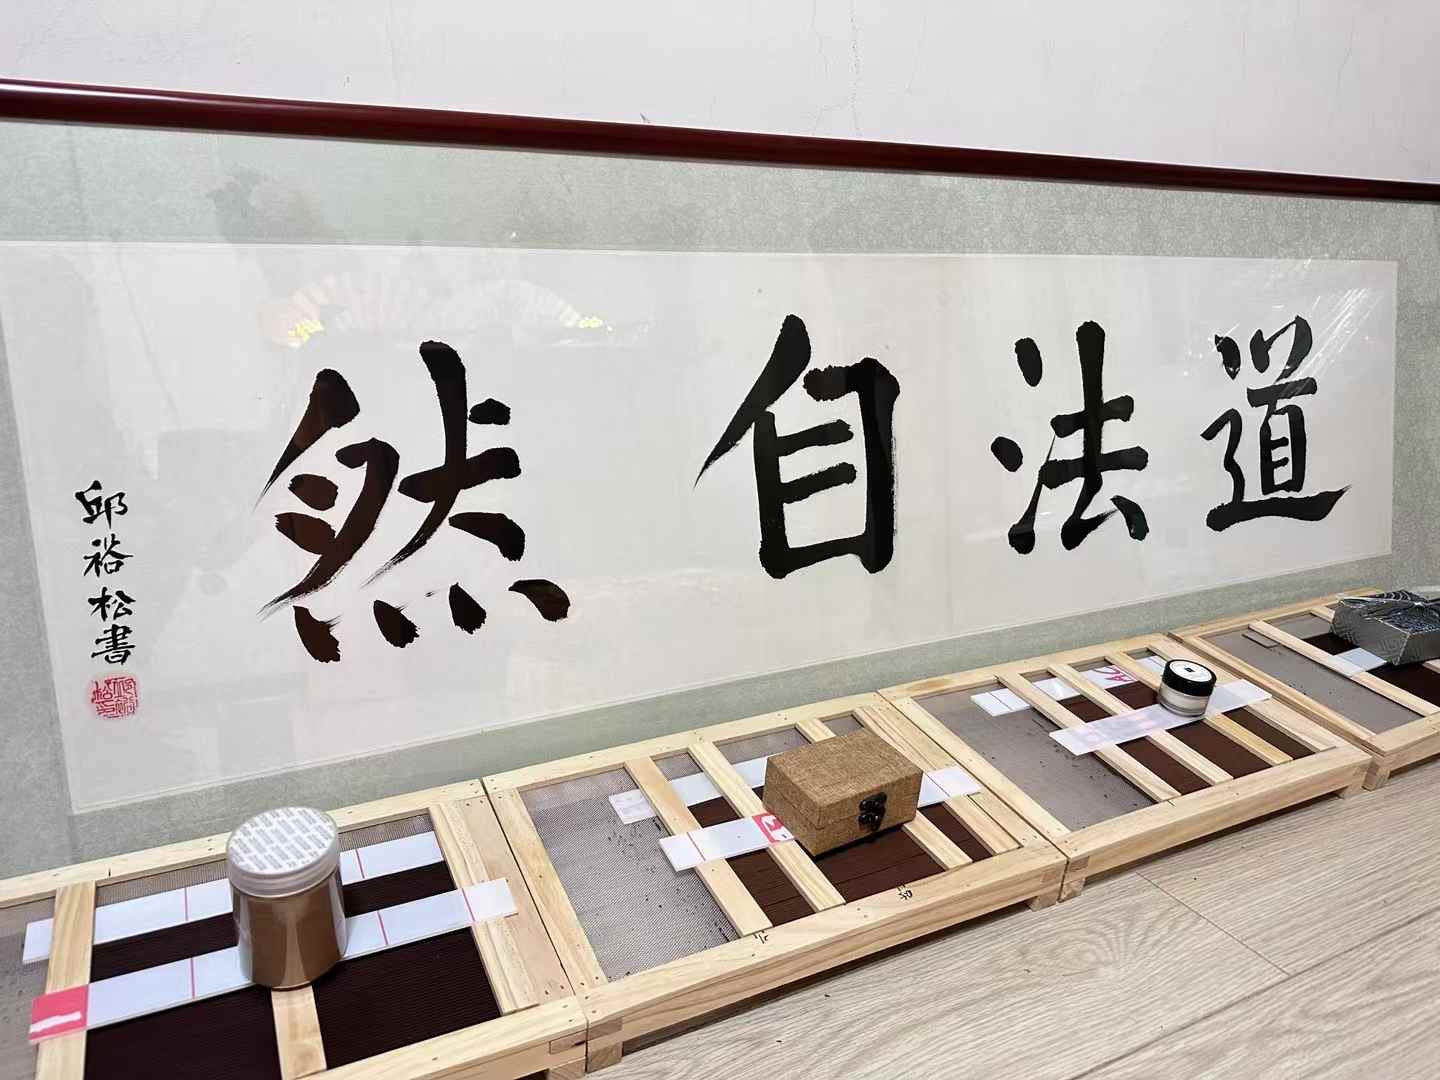 道法自然
邱裕松書